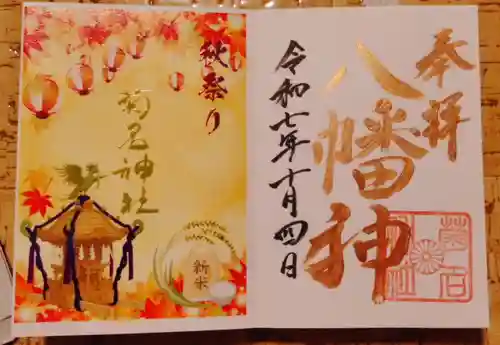 奉拝
八幡神
令和七年十月四日
菊名神社
秋祭り
菊名神社
新米